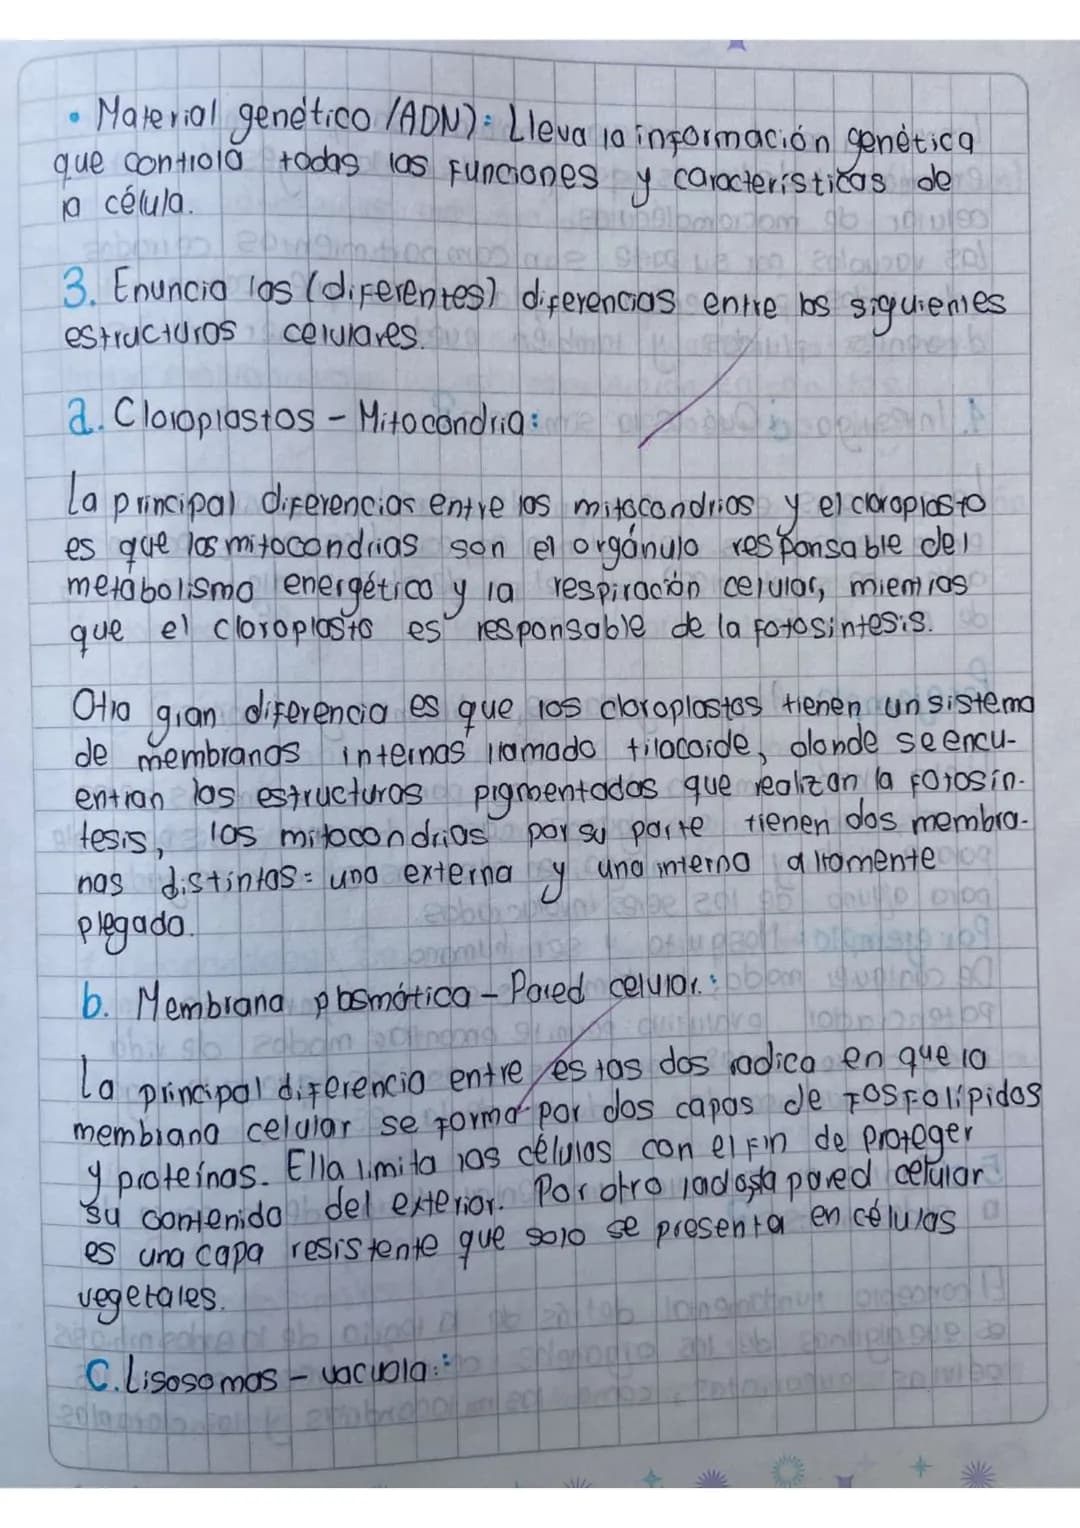 • Material genético (ADN): Lleva la información genética
que controla todas las funciones y características de
la célula.
3. Enuncia las (diferentes) diferencias entre las siguientes
estructuras celulares.
a. Cloroplastos - Mitocondria:
La principal diferencias entre las mitocondrias y el cloroplasto
es que las mitocondrias son el orgánulo responsable del
metabolismo energético y la respiración celular, mientras
que el cloroplasto es responsable de la fotosíntesis.
Otra gran diferencia es que los cloroplastos tienen un sistema
de membranas internas llamado tilacoide, donde se encu-
entran las estructuras pigmentadas que realizan la fotosín-
tesis, las mitocondrias por su parte tienen dos membra-
nas distintas: una externa y una interna altamente
plegada.
b. Membrana plasmática - Pared celular:
La principal diferencia entre estas dos radica en que la
membrana celular se forma por dos capas de fosfolípidos
y proteínas. Ella limita las células con el fin de proteger
su contenido del exterior. Por otro lado esta pared celular
es una capa resistente que solo se presenta en células
vegetales.
C. Lisosomas - vacuola: